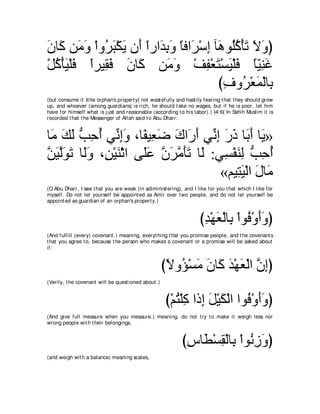 (وَلاَ تَأْكُلُوهَآ إِسْرَافاً وَبِدَاراً أَن يَكْبَرُواْ وَمَن كَانَ
غَنِيّاً فَلْيَسْتَعْفِفْ وَمَن كَانَ فَقِيراً فَلْيَأْكُلْ
بِالْمَعْرُوفِ)
(but consume it [the orphan's property] not wastefully and hastily fearing that they should grow
up, and whoever (among guardians) is rich, he should take no wages, but if he is poor, let him
have for himself what is just and reasonable (according to his labor).) (4:6)( In Sahih Muslim it is
recorded that the Messenger of Allah said to Abu Dharr:
«يَا أَبَا ذَرَ إِنِّي أَرَاكَ ضَعِيفًا، وَإِنِّي أُحِبُّ لَكَ مَا
أُحِبُّ لِنَفْسِي: لَا تَأَمَّرَنَّ عَلَى اثْنَيْنِ، وَلَا تَوَلَّيَنَّ
مَالَ الْيَتِيم»
(O Abu Dharr, I see that you are weak (in administering), and I like for you that which I like for
myself. Do not let yourself be appointed as Amir over two people, and do not let yourself be
appointed as guardian of an orphan's property.)
(وَأَوْفُوا بِالْعَهْدِ)
(And fulfill (every) covenant.) meaning, everything that you promise people, and the covenants
that you agree to, because the person who makes a covenant or a promise will be asked about
it:
(إِنَّ الْعَهْدَ كَانَ مَسْؤُولاً)
(Verily, the covenant will be questioned about.)
(وَأَوْفُوا الْكَيْلَ إِذا كِلْتُمْ)
(And give full measure when you measure.) meaning, do not try to make it weigh less nor
wrong people with their belongings.
(وَزِنُواْ بِالْقِسْطَاسِ)
(and weigh with a balance) meaning scales,